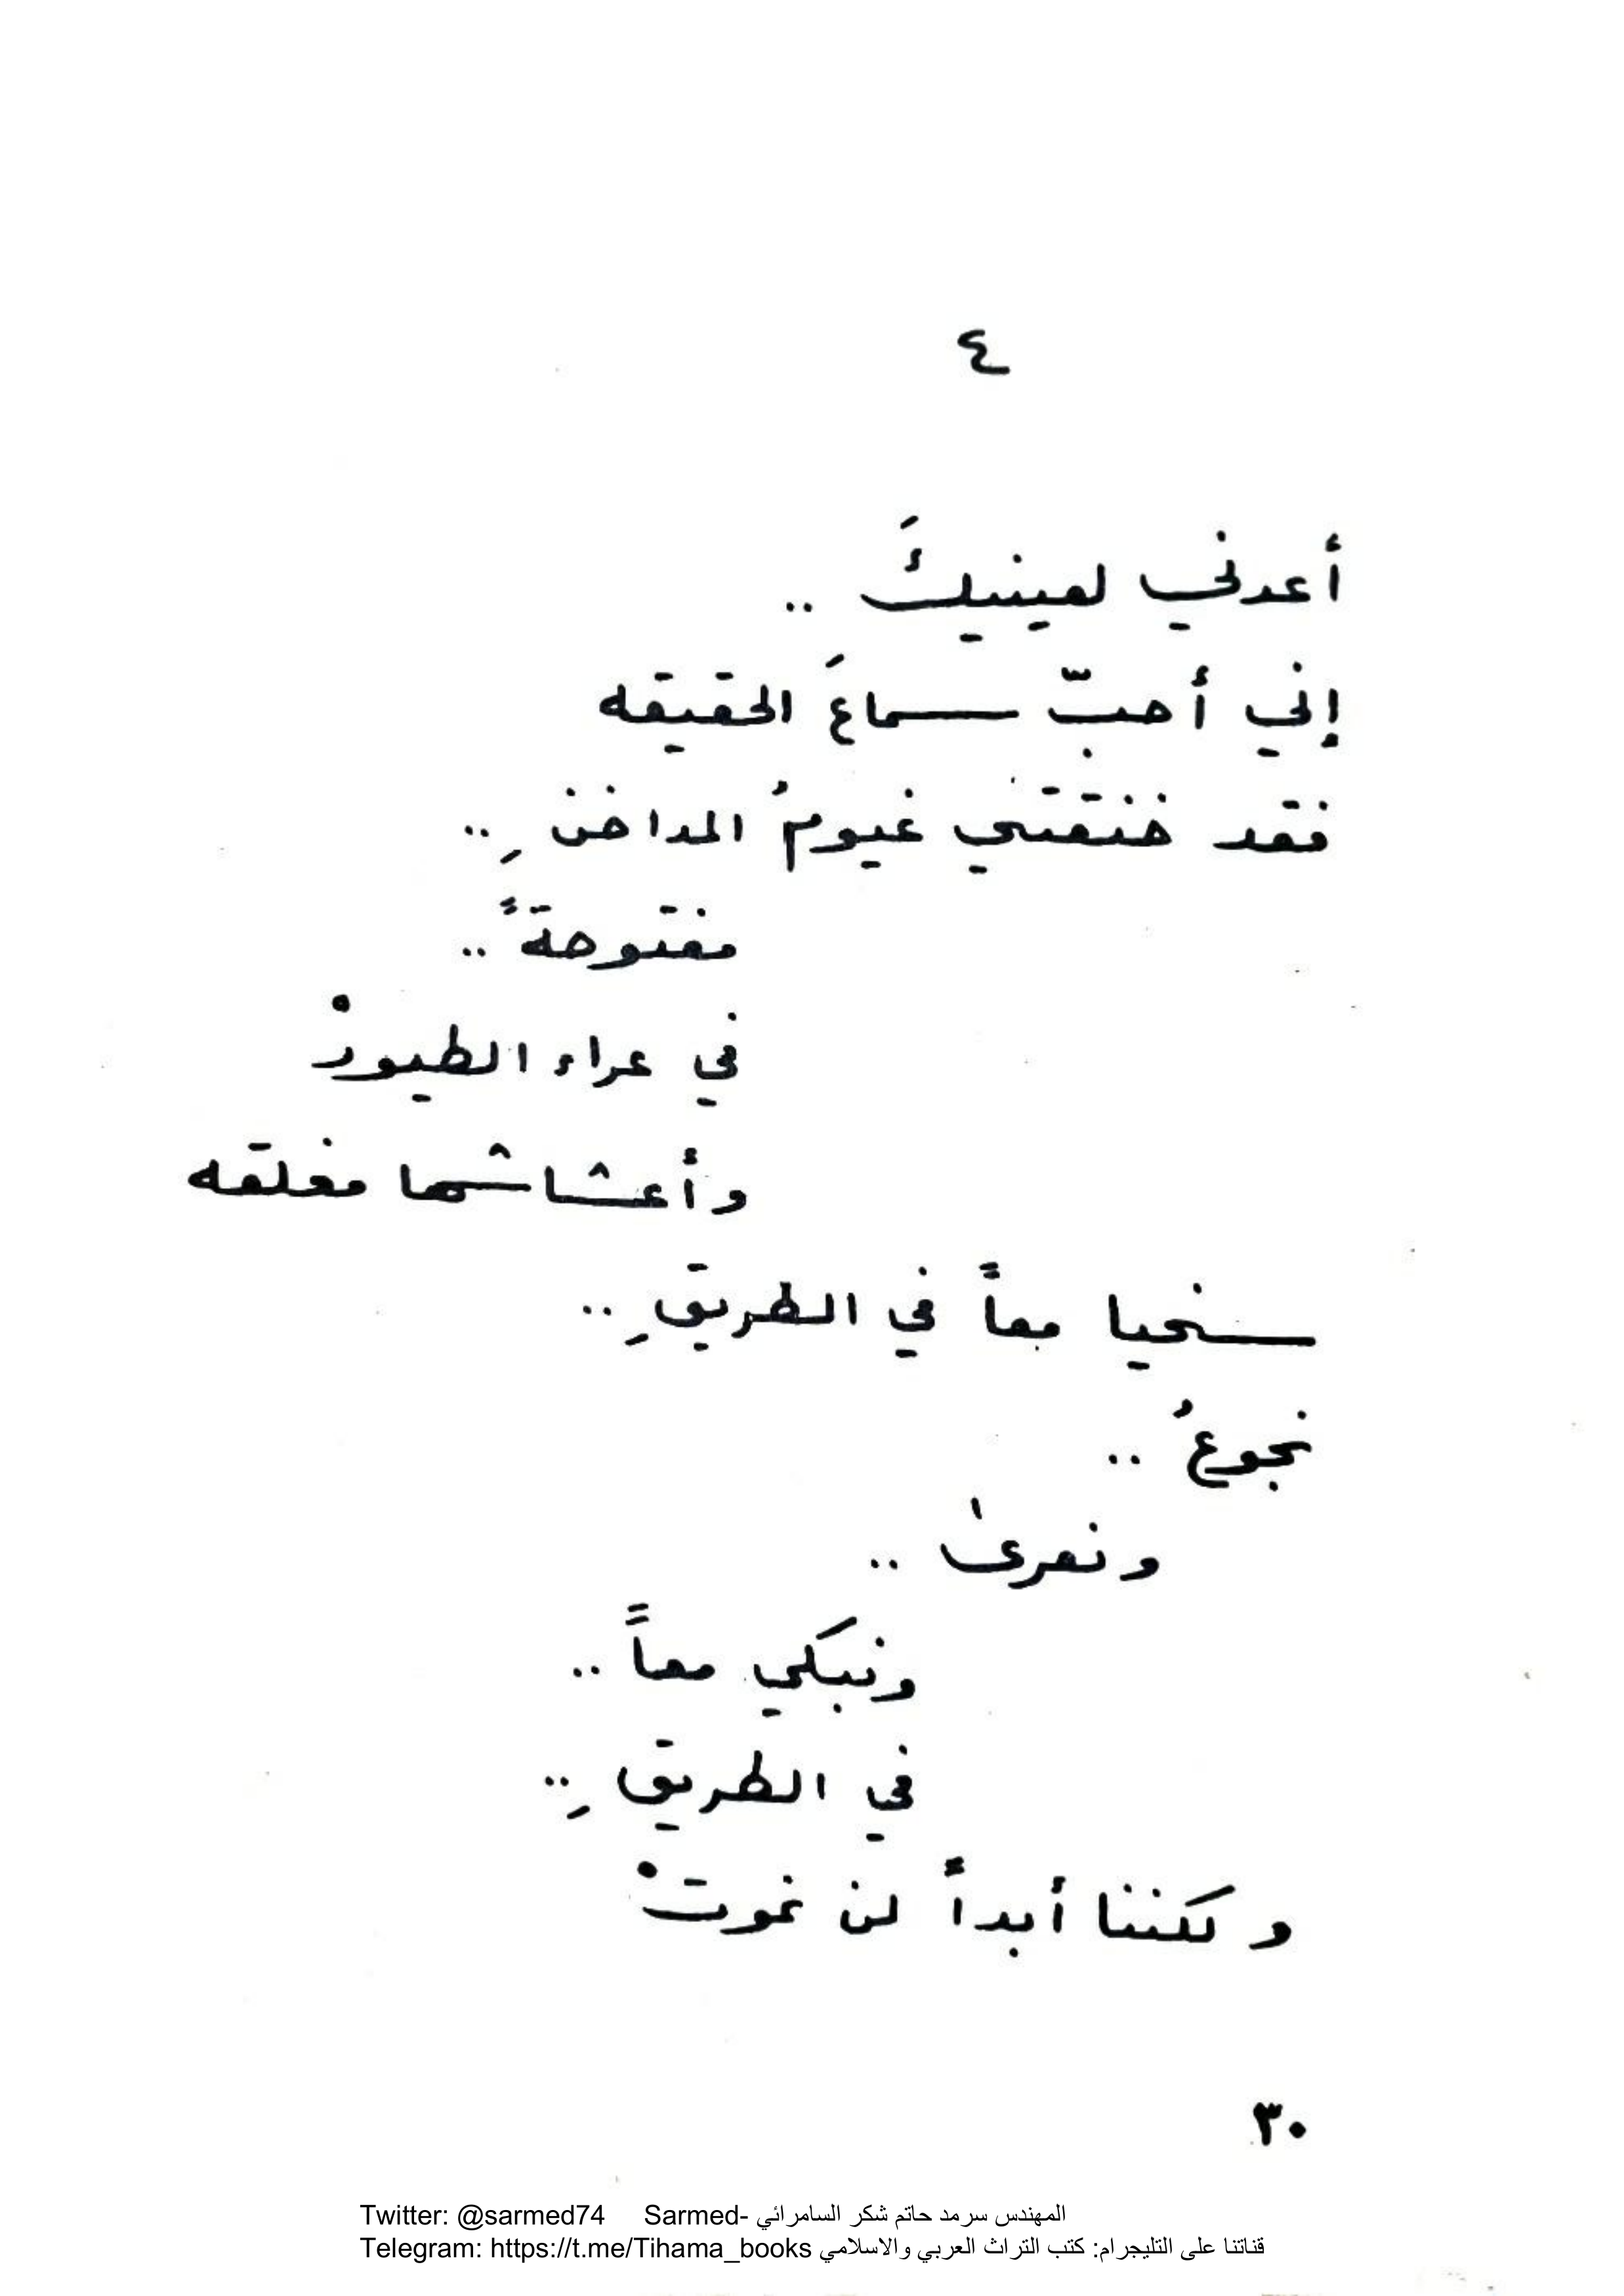 ٤
أعدني لعينيكَ ..
إني أحبّ سماعَ الحقيقه
فقد خنقتني غيومُ المداخنِ ..
مفتوحةً ..
في عراء الطيورْ
وأعشاشها مغلقه
سنحيا معاً في الطريقِ ..
نجوعُ ..
ونعرىٰ ..
ونبكي معاً ..
في الطريقِ ..
ولكننا أبداً لن نموتْ
٣٠
Twitter: @sarmed74 Sarmed- المهندس سرمد حاتم شكر السامرائي
Telegram: https://t.me/Tihama_books قناتنا على التليجرام: كتب التراث العربي والاسلامي